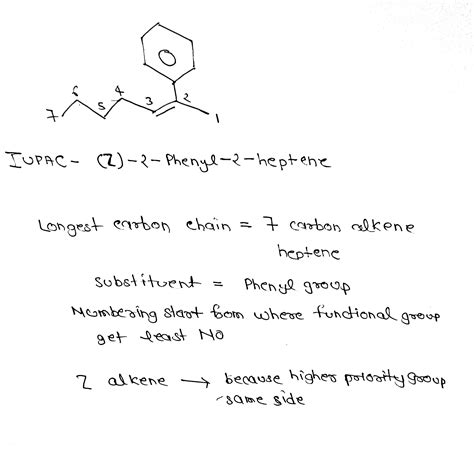 6
4
2
7
5
3
1
IUPAC - (Z)-2-Phenyl-2-heptene
Longest carbon chain = 7 carbon alkene
heptene
substituent = Phenyl group
Numbering start from where functional group
get least No
Z alkene → because higher priority group
- same side